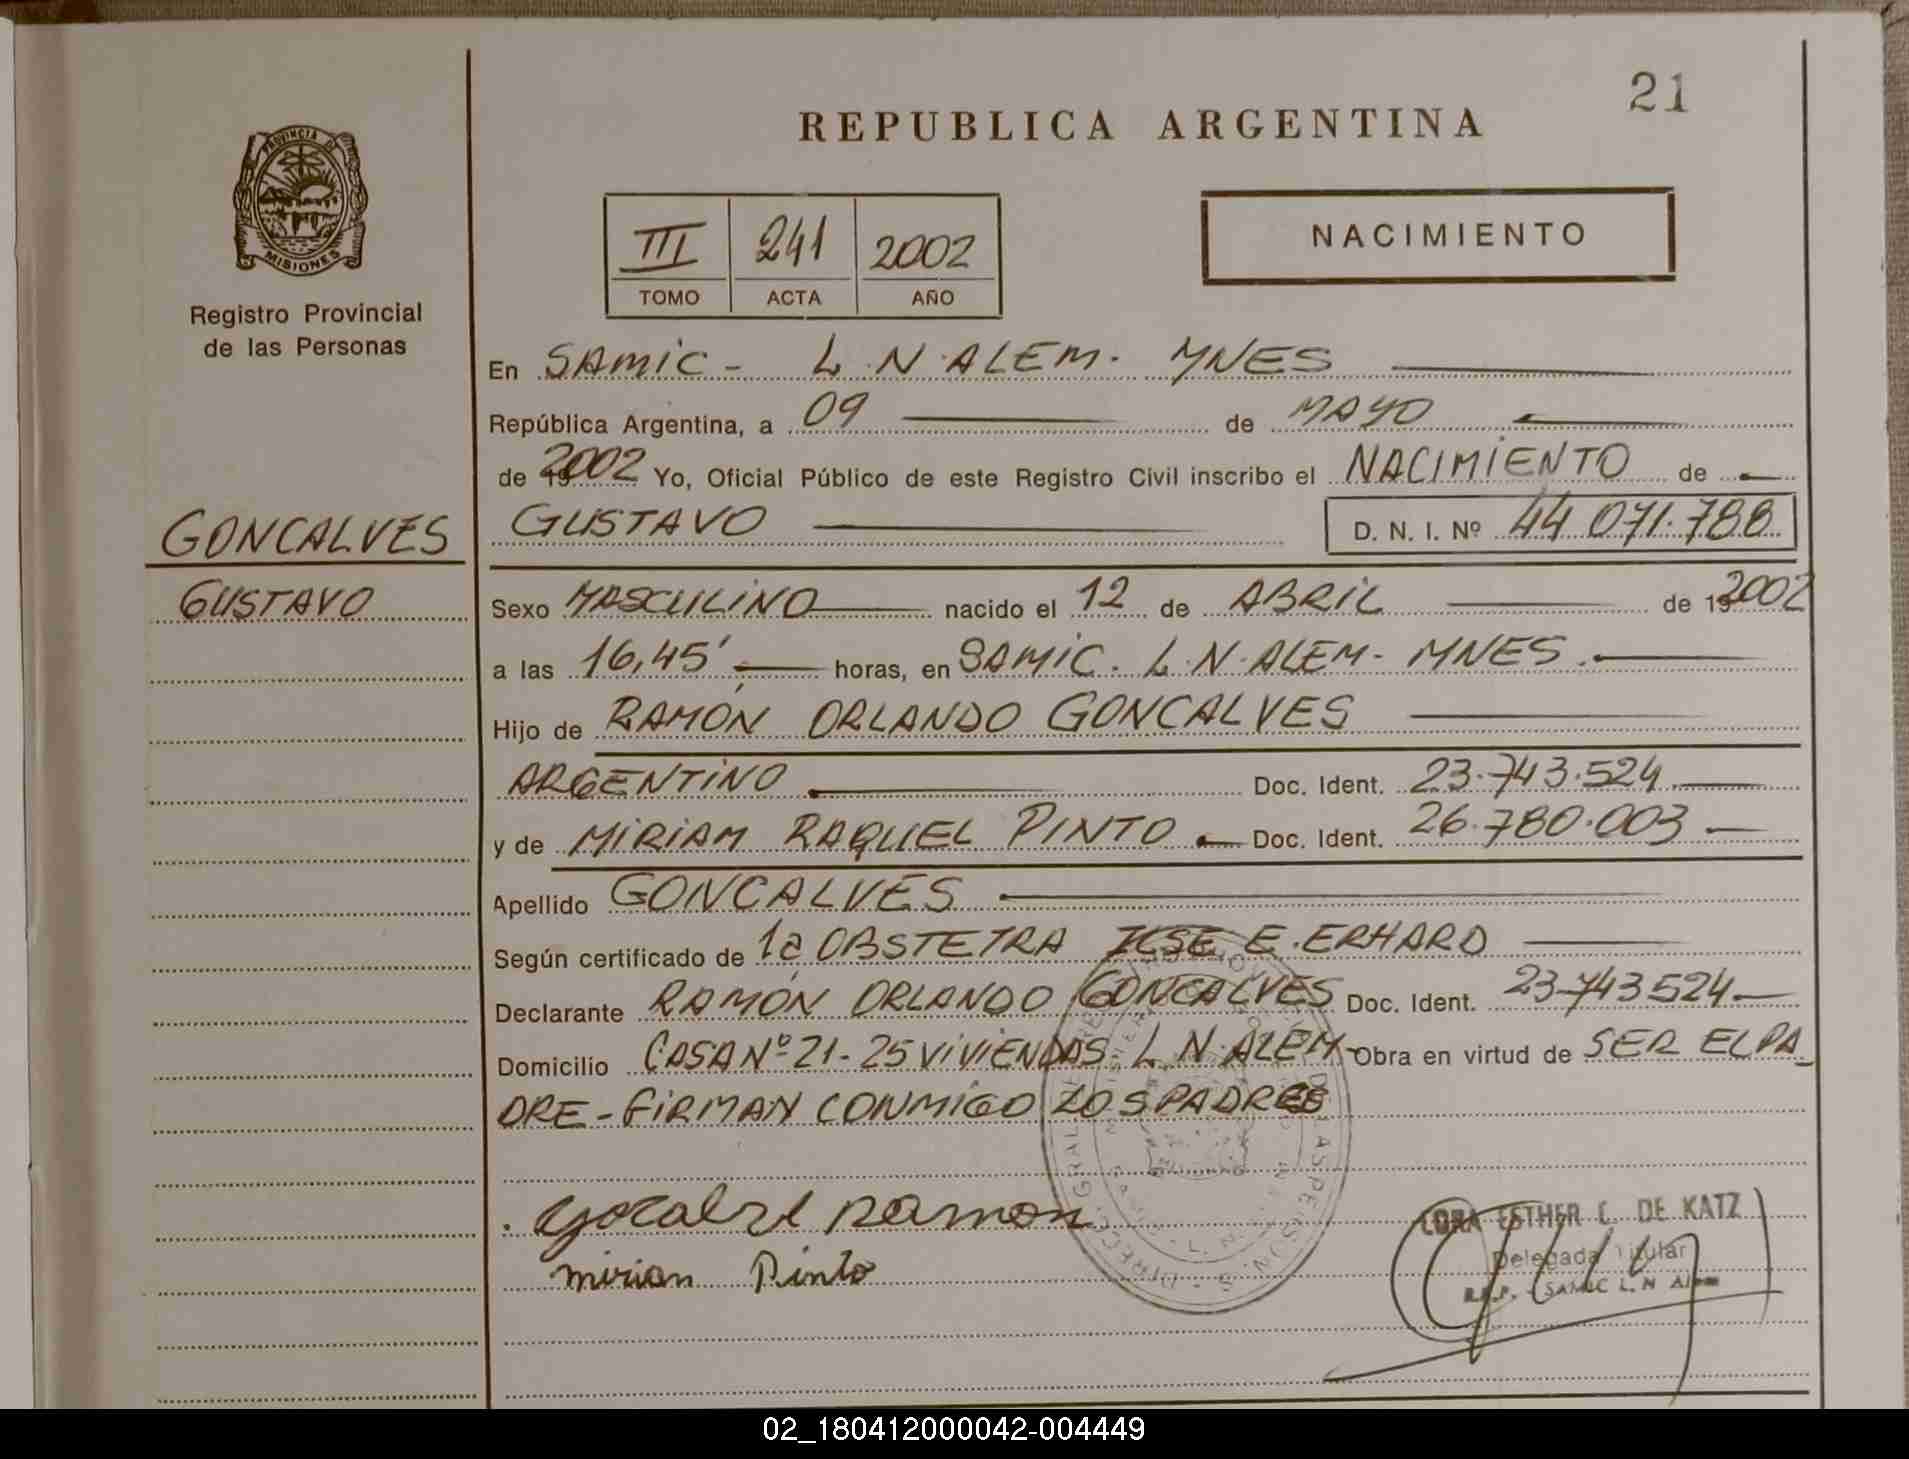 21
REPUBLICA ARGENTINA
PROVINCIA DE
MISIONES
Registro Provincial
de las Personas
III 241 2002
TOMO ACTA AÑO
NACIMIENTO
En SAMIC - L.N.ALEM. MNES
República Argentina, a 09 de MAYO
de 2002 Yo, Oficial Público de este Registro Civil inscribo el NACIMIENTO de
GONCALVES
GUSTAVO D. N. I. Nº 44.071.788
GUSTAVO
Sexo MASCULINO nacido el 12 de ABRIL de 192002
a las 16,45' horas, en SAMIC. L.N.ALEM- MNES.
Hijo de RAMÓN ORLANDO GONCALVES
ARGENTINO Doc. Ident. 23.743.524
y de MIRIAM RAQUEL PINTO Doc. Ident. 26.780.003
Apellido GONCALVES
Según certificado de la OBSTETRA ILSE E. ERHARD
Declarante RAMÓN ORLANDO GONCALVES Doc. Ident. 23743524
Domicilio CASA Nº 21-25 VIVIENDAS L N.ALEM- Obra en virtud de SER EL PA
DRE - FIRMAN CONMIGO LOS PADRES
Ramon
mirian Pinto
ESTHER C. DE KATZ
Delegada Titular
R.P.P. - SAMIC L.N Alem
02_180412000042-004449